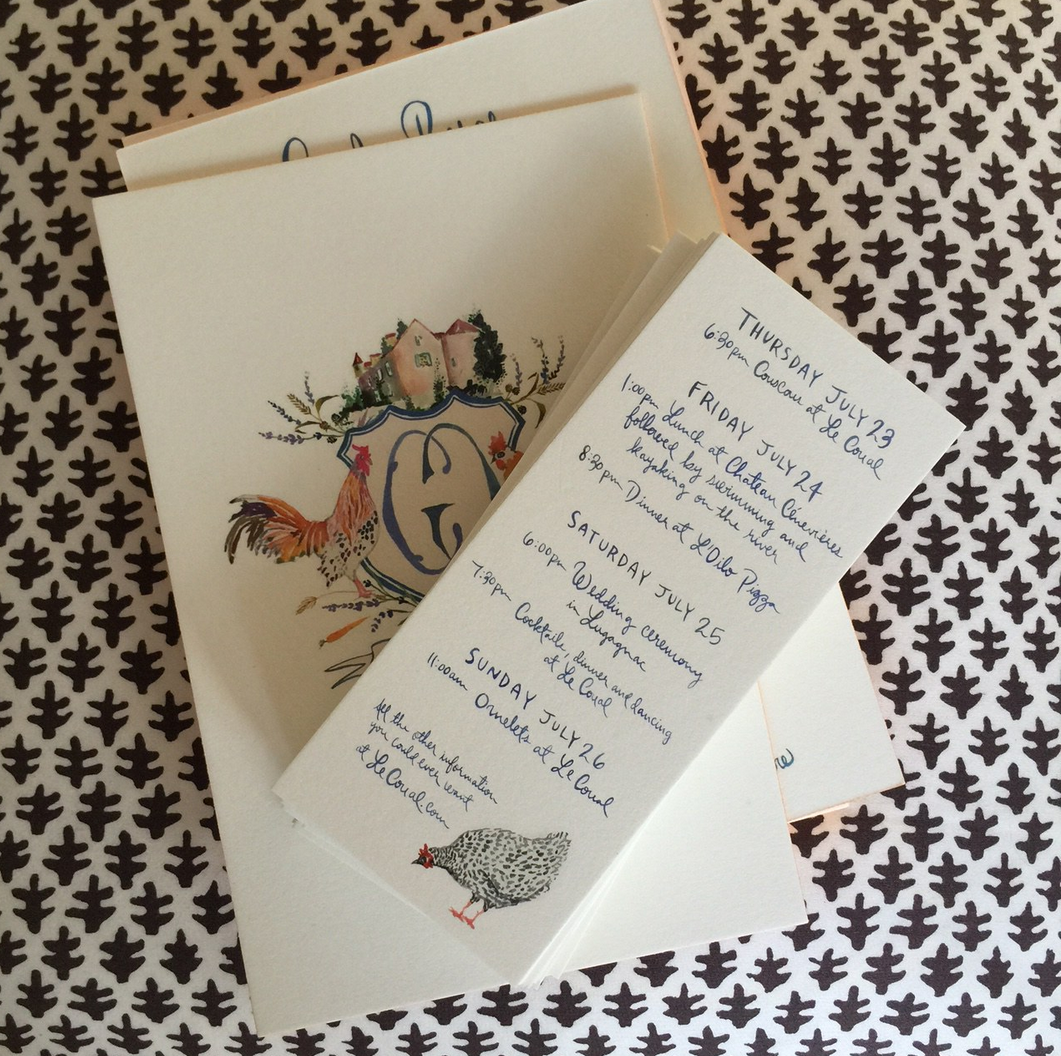 THURSDAY JULY 23
6:30pm Couscous at Le Coual
FRIDAY JULY 24
1:00pm Lunch at Chateau Cénevières
followed by swimming and
kayaking on the river
8:30pm Dinner at L'Oilo Pizza
SATURDAY JULY 25
6:00pm Wedding ceremony
in Lugagnac
7:30pm Cocktails, dinner and dancing
at Le Coual
SUNDAY JULY 26
11:00am Omelets at Le Coual
All the other information
you could ever want
at LeCoual.com